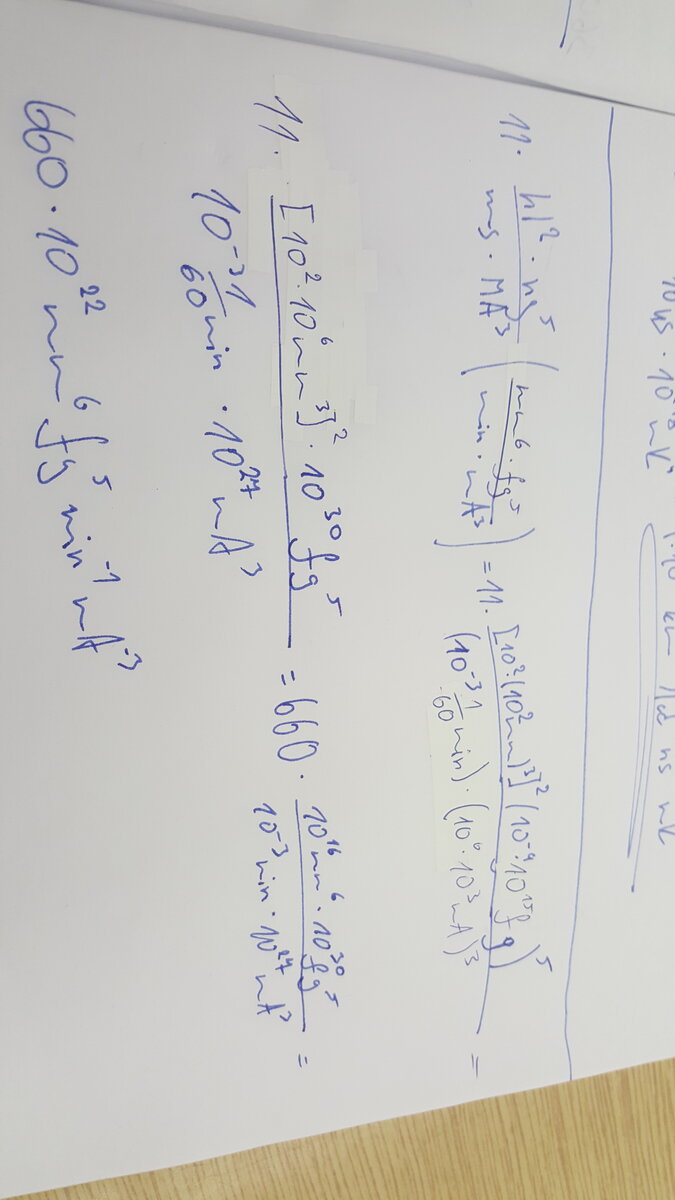 10 ns · 10⁻⁸ mK
11 · hl² · ng⁵ / ms · MA³ ( mm⁶ · fg⁵ / min · mA³ ) = 11 · [10²·(10² mm)³]² (10⁻⁹·10¹⁵ fg)⁵ / (10⁻³ 1/60 min) · (10⁶·10³ mA)³ =
11 · [10²·10⁶ mm³]² · 10³⁰ fg⁵ / 10⁻³ 1/60 min · 10²⁷ mA³ = 660 · 10¹⁶ mm⁶ · 10³⁰ fg⁵ / 10⁻³ min · 10²⁷ mA³ =
660 · 10²² mm⁶ fg⁵ min⁻¹ mA⁻³